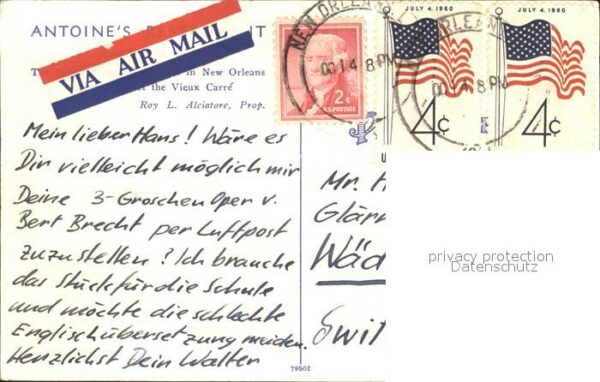 ANTOINE'S
VIA AIR MAIL
in New Orleans
the Vieux Carré
Roy L. Alciatore, Prop.
Mein lieber Hans! Wäre es
Dir vielleicht möglich mir
Deine 3-Groschen Oper v.
Bert Brecht per Luftpost
zuzustellen? Ich brauche
das Stück für die Schule
und möchte die schlechte
Englischübersetzung meiden.
Herzlichst Dein Walter
79502
2¢
U.S. POSTAGE
NEW ORLEANS
OCT 4 8 PM
JULY 4, 1960
4¢
JULY 4, 1960
OCT 4 8 PM
4¢
Mr. H
Glärn
Wäd
Swit
privacy protection
Datenschutz